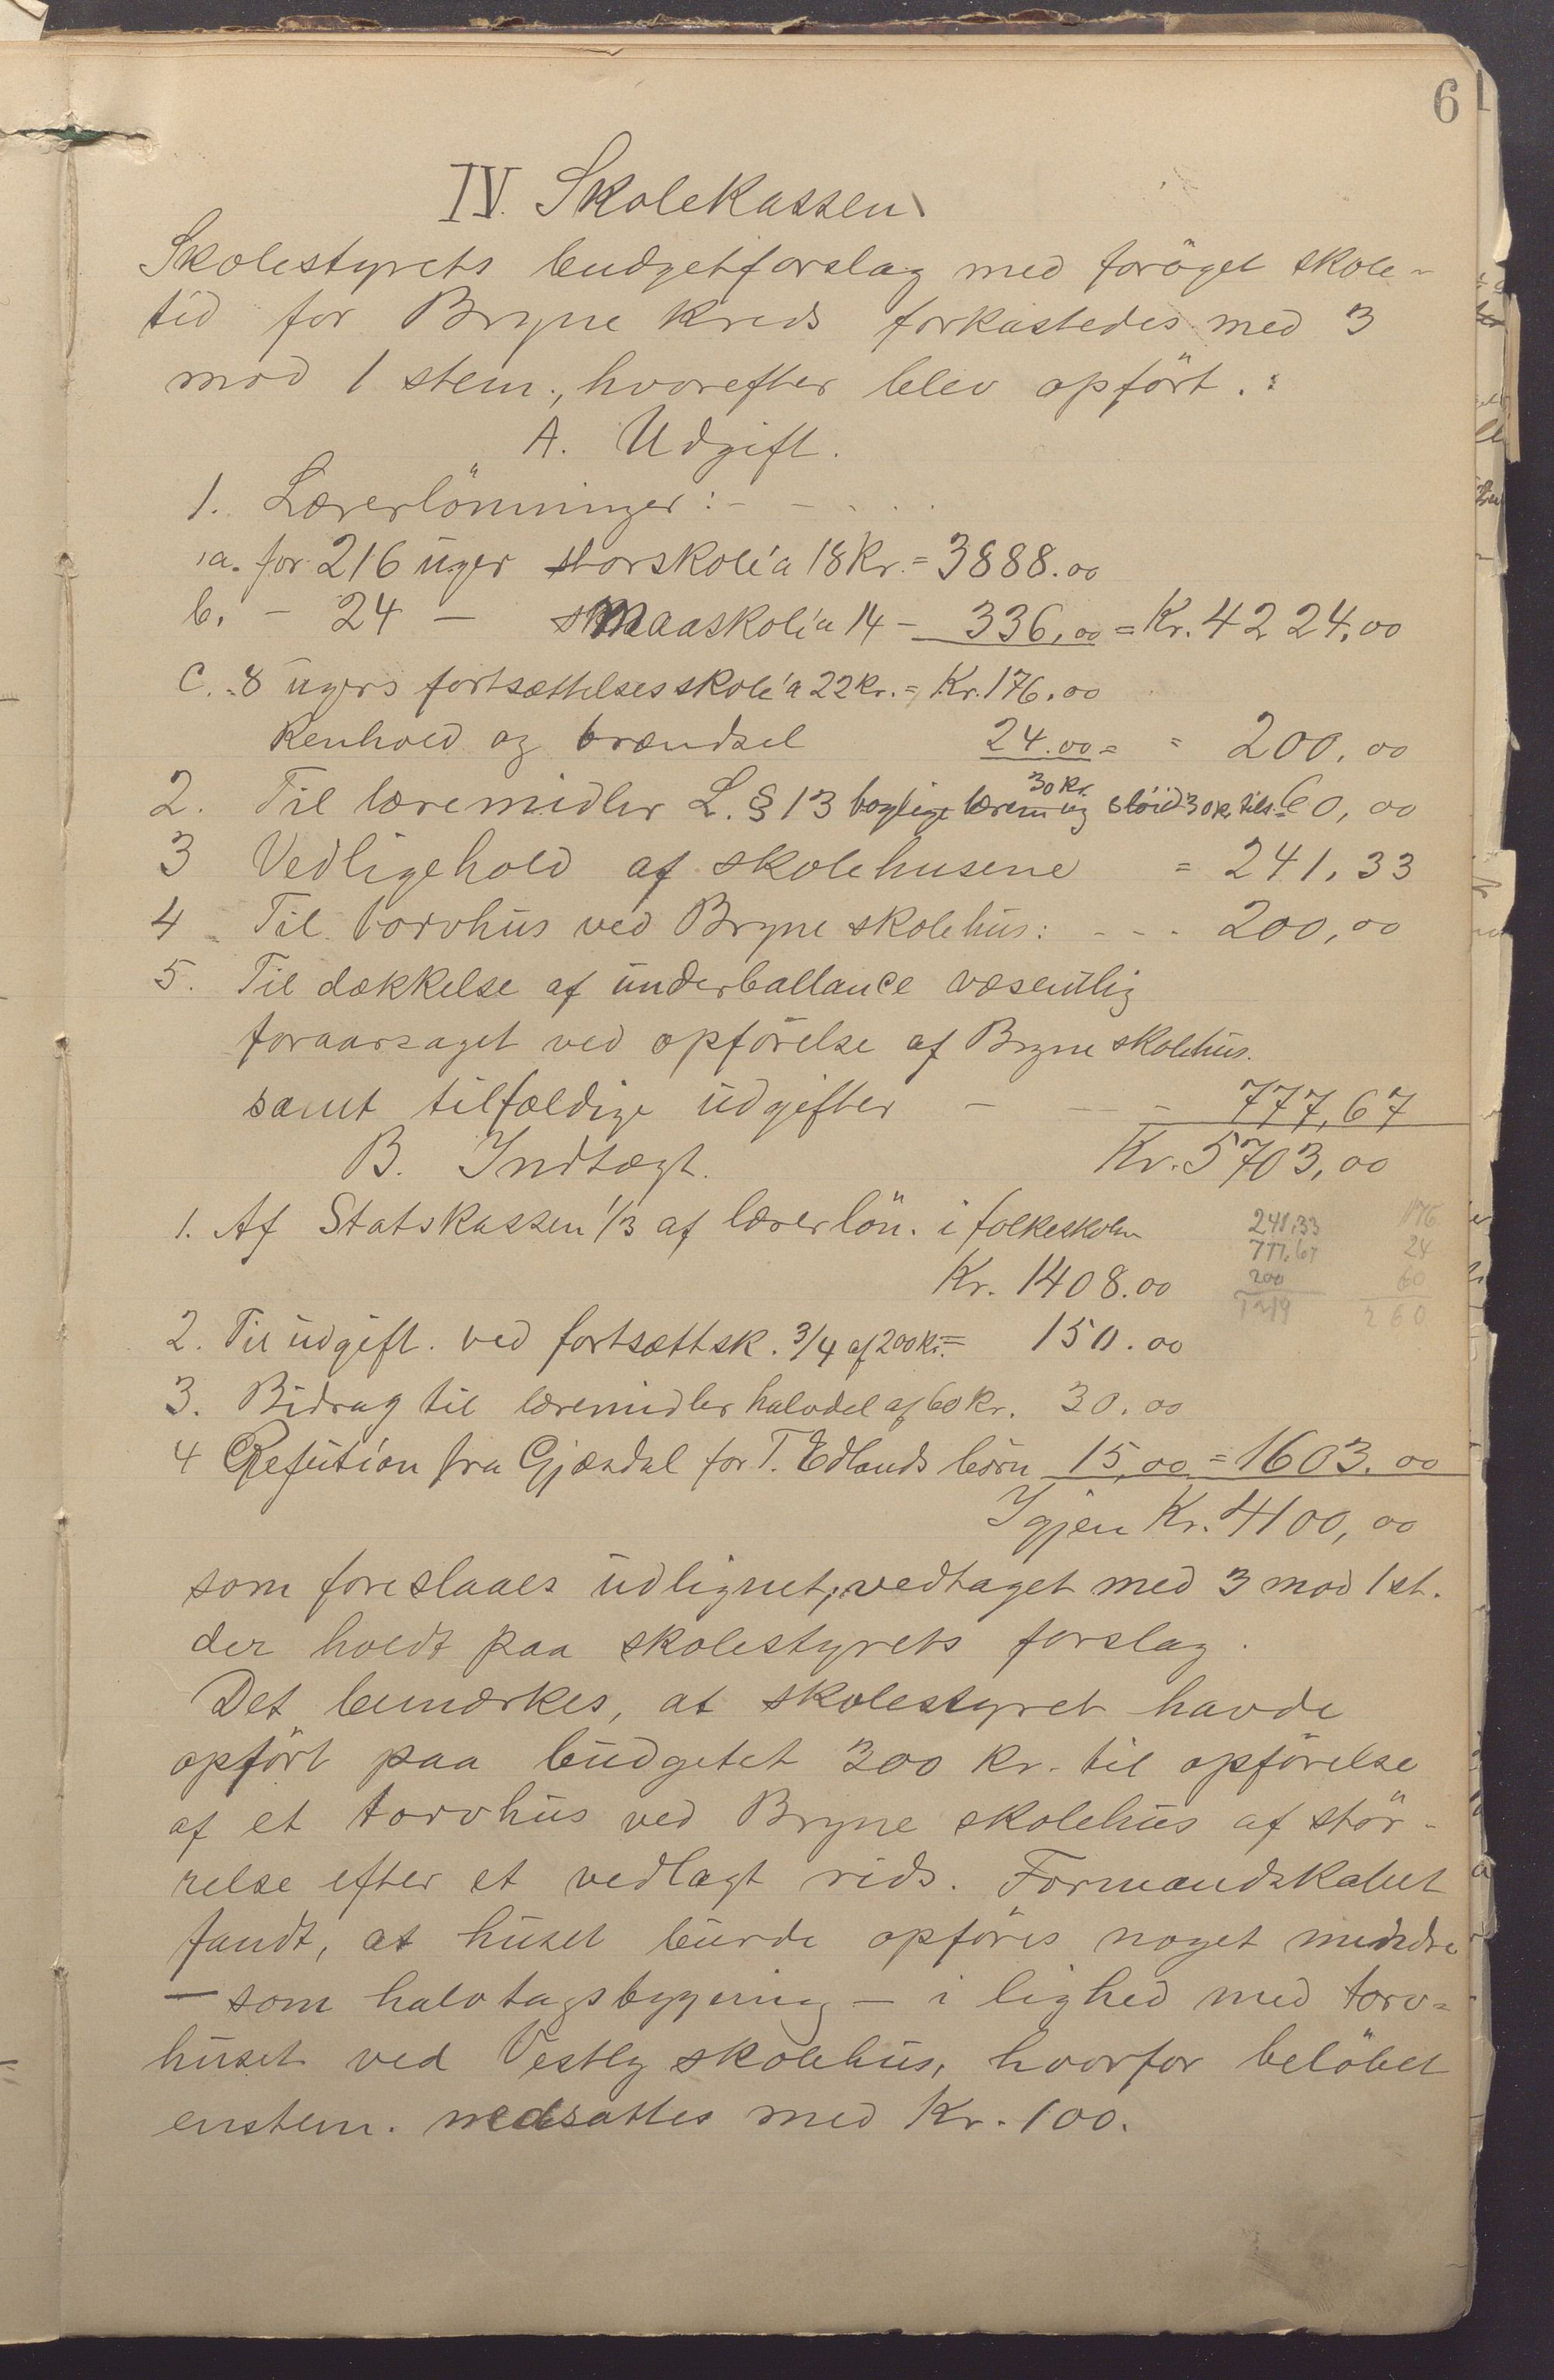 6
IV. Skolekassen
Skolestyrets budgetforslag med foröget skole-
tid for Bryne kreds forkastedes med 3
mod 1 stem., hvorefter blev opfört.:
A. Udgift.
1. Lærerlönninger: - - . . .
a. for 216 uger storskole á 18 Kr. = 3888.00
b. - 24 - smaaskole á 14 - 336,00 = Kr. 4224,00
C. 8 ugers fortsættelsesskole á 22 kr. = Kr. 176.00
Renhold og brændsel 24.00 = = 200,00
30 Kr.
2. Til læremidler L. § 13 boglige lærem og slöid 30 kr. tils. = 60,00
3 Vedligehold af skolehusene = 241,33
4 Til torvhus ved Bryne skolehus: - - - 200,00
5. Til dækkelse af underballance væsentlig
foraarsaget ved opförelse af Bryne skolehus.
samt tilfældige udgifter - - - - 777,67
B. Indtægt. Kr. 5703,00
1. Af Statskassen 1/3 af lærerlön. i folkeskolen
241,33 176
777,67 24
200 60
1219 260
Kr. 1408.00
2. Til udgift. ved fortsættsk. 3/4 af 200 Kr. = 150.00
3. Bidrag til læremidler halvdel af 60 Kr. 30.00
4 Refution fra Gjæsdal for T. Edlands börn 15,00 = 1603.00
Igjen Kr. 4100,00
som foreslaaes udlignet; vedtaget med 3 mod 1 st.
der holdt paa skolestyrets forslag.
Det bemærkes, at skolestyret havde
opfört paa budgetet 300 Kr. til opförelse
af et torvhus ved Bryne skolehus af stör-
relse efter et vedlagt rids. Formandskabet
fandt, at huset burde opföres noget mindre
- som halvtagsbygning - i lighed med torv=
huset ved Vestly skolehus, hvorfor belöbet
enstem. nedsattes med Kr. 100.